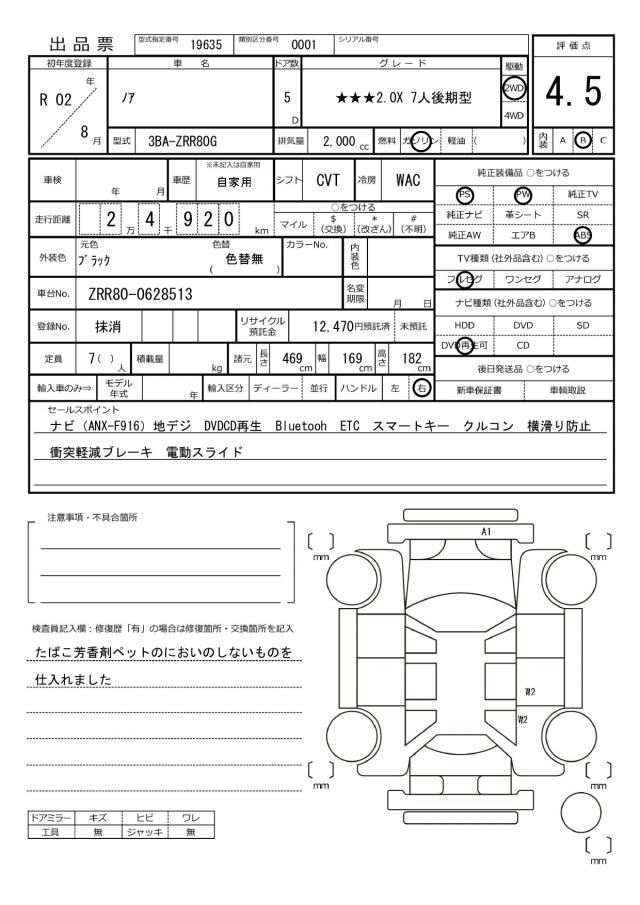 出品票 型式指定番号 19635 類別区分番号 0001 シリアル番号
評価点
4.5
内装 A B C
初年度登録 車名 ドア数 グレード 駆動
R 02 年 8 月 ノア 5 D ★★★2.0X 7人後期型 2WD 4WD
型式 3BA-ZRR80G 排気量 2,000 cc 燃料 ガソリン 軽油 ( )
車検 年 月 車歴 ※未記入は自家用 自家用 シフト CVT 冷房 WAC
走行距離 2 万 4 千 9 2 0 km ○をつける マイル $ (交換) * (改ざん) # (不明)
外装色 元色 ブラック 色替 ( 色替無 ) カラーNo. 内装色
車台No. ZRR80-0628513 名変期限 月 日
登録No. 抹消 リサイクル預託金 12,470円預託済 未預託
定員 7 ( ) 人 積載量 kg 諸元 長さ 469 cm 幅 169 cm 高さ 182 cm
輸入車のみ⇒ モデル年式 年 輸入区分 ディーラー 並行 ハンドル 左 右
純正装備品 ○をつける
PS PW 純正TV
純正ナビ 革シート SR
純正AW エアB ABS
TV種類 (社外品含む) ○をつける
フルセグ ワンセグ アナログ
ナビ種類 (社外品含む) ○をつける
HDD DVD SD
DVD再生可 CD
後日発送品 ○をつける
新車保証書 車輌取説
セールスポイント
ナビ (ANX-F916) 地デジ DVDCD再生 Bluetooh ETC スマートキー クルコン 横滑り防止
衝突軽減ブレーキ 電動スライド
注意事項・不具合箇所
検査員記入欄：修復歴「有」の場合は修復箇所・交換箇所を記入
たばこ芳香剤ペットのにおいのしないものを
仕入れました
ドアミラー キズ ヒビ ワレ
工具 無 ジャッキ 無
A1
mm mm
W2
W2
mm mm
mm